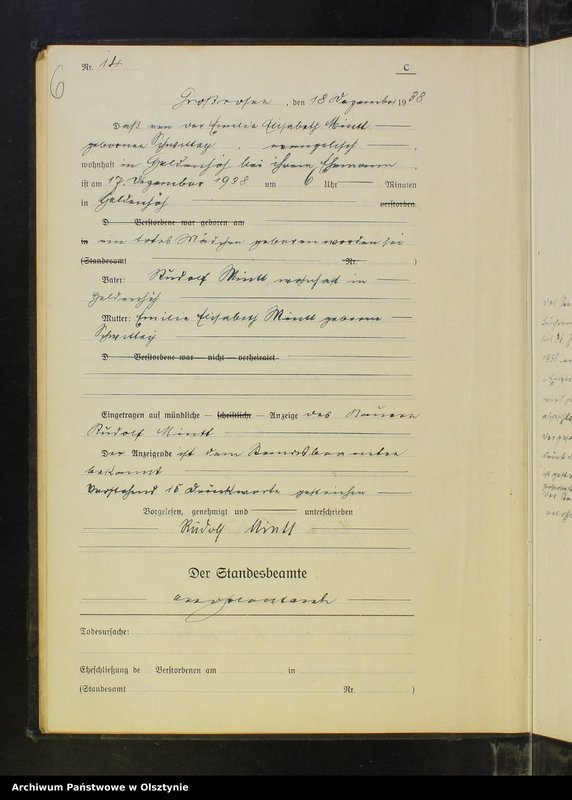 6
Nr. 14
C
Großrosen, den 18 Dezember 1938
Daß von der Emilie Elisabeth Mintt
geborenen Schwittay, evangelisch,
wohnhaft in Heldenhöh bei ihrem Ehemann,
ist am 17. Dezember 1938 um 6 Uhr Minuten
in Heldenhöh verstorben.
D Verstorbene war geboren am
in ein totes Mädchen geboren worden sei
(Standesamt Nr. )
Vater: Rudolf Mintt, wohnhaft in
Heldenhöh
Mutter: Emilie Elisabeth Mintt geborene
Schwittay
D Verstorbene war — nicht — verheiratet
Eingetragen auf mündliche — schriftliche — Anzeige des Bauern
Rudolf Mintt
Der Anzeigende ist dem Standesbeamten
bekannt
Vorstehend 15 Druckworte gestrichen
Vorgelesen, genehmigt und unterschrieben
Rudolf Mintt
Der Standesbeamte
Todesursache:
Eheschließung de Verstorbenen am in
(Standesamt Nr. )
Archiwum Państwowe w Olsztynie